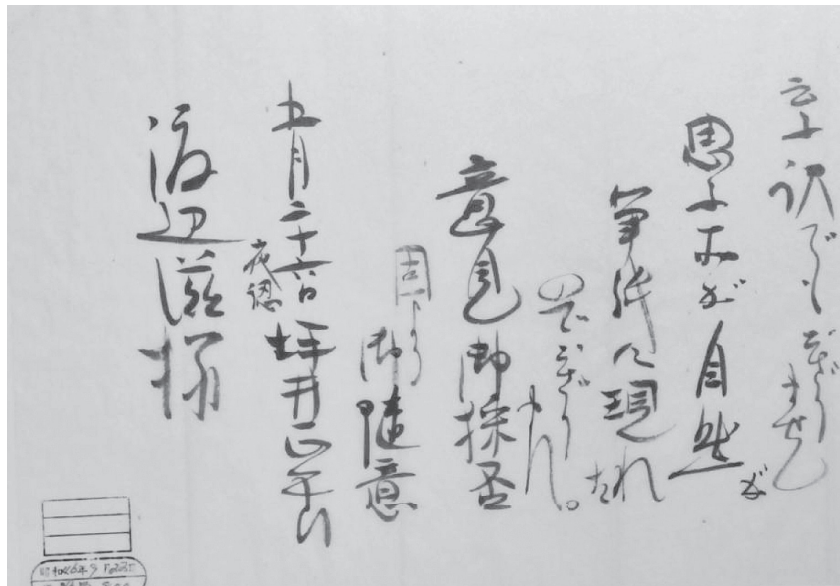 云ふ訳でもござりません
思ふ事が自然
筆紙に現れた
のでござりません。
意見御採否
固より
御随意
五月二十六日
夜認
坪井正五郎
渡辺滋様